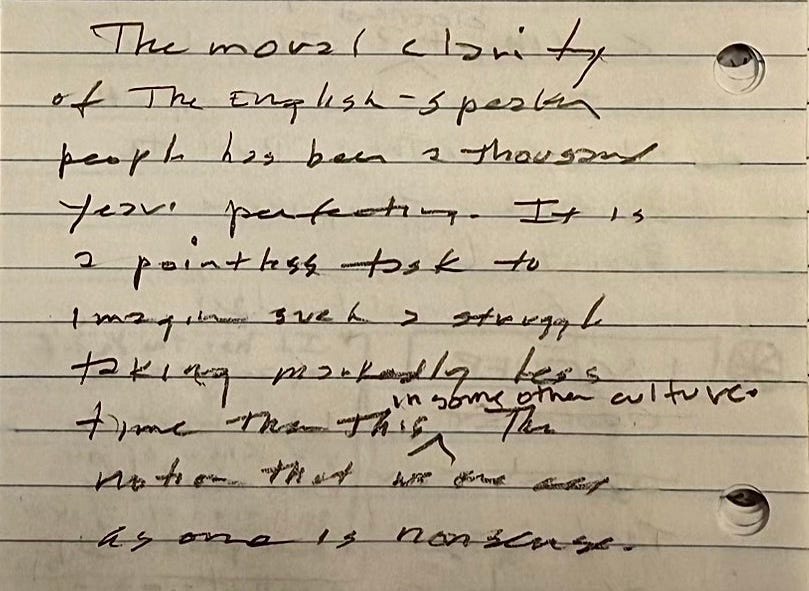 The moral clarity
of The English-speaking
people has been a thousand
years perfecting. It is
a pointless task to
imagine such a struggle
taking markedly less
in some other culture.
time than this The
notion that we are
as one is nonsense.